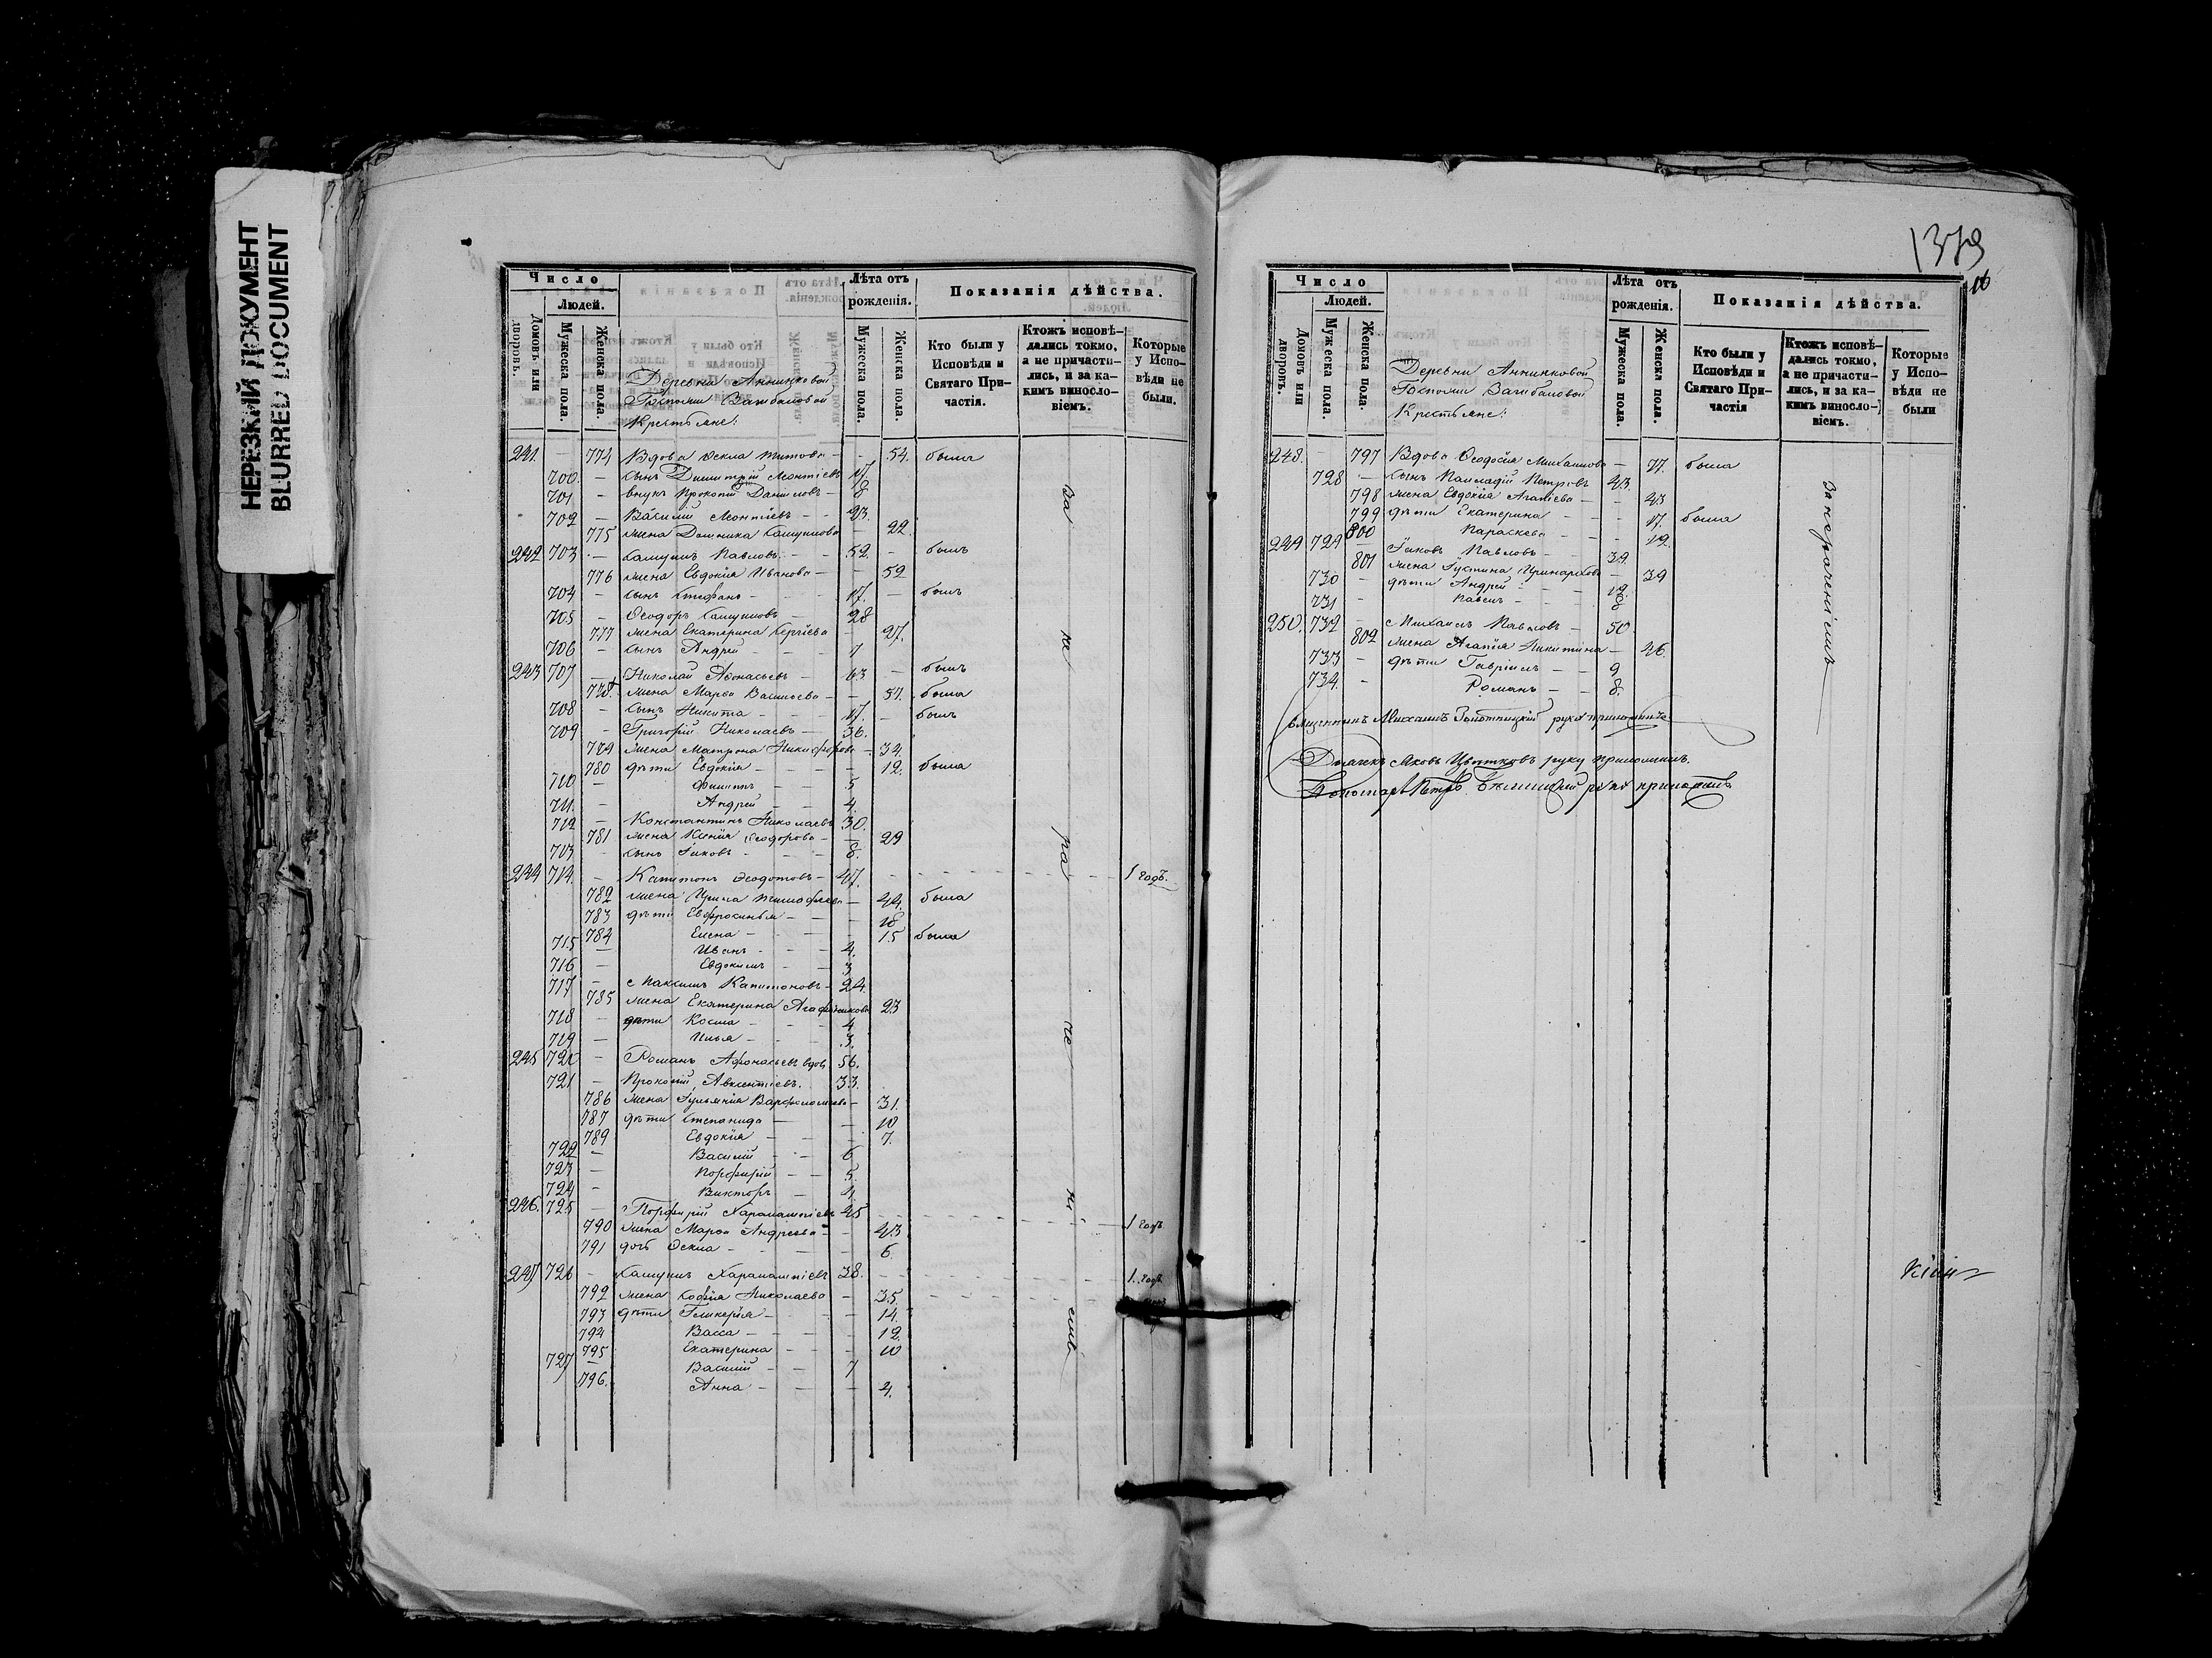 НЕРЕЗКИЙ ДОКУМЕНТ
BLURRED DOCUMENT
Число
Людей.
Домовъ или дворовъ.
Мужеска пола.
Женска пола.
Лѣта отъ рожденія.
Мужеска пола.
Женска пола.
Показанія дѣйства.
Кто были у Исповѣди и Святаго Причастія.
Ктожъ исповѣдались токмо, а не причастились, и за какимъ винословіемъ.
Которые у Исповѣди не были.
Деревни Аннинковой
Госпожи
Крестьяне:
241. — 774 Вдова Ѳекла Титова — — 54. была
700. — сынъ Димитрій Леонтіевъ 17.
701 — внукъ Прокопій Даніиловъ — 8
702 — Василій Леонтіевъ — — 23.
775 жена Домника — 22.
242 703. — Павловъ — 52. — былъ
776 жена Евдокія Иванова — — 52
704 — сынъ Стефанъ — — 17. — былъ
705 — Ѳеодоръ 28
777 жена Екатерина Сергіева — 27.
706 — сынъ Андрей — — — 1
243 707 — Николай Аѳонасьевъ — 63 — былъ
778. жена Марѳа Васильева — — 57. была
708 — сынъ Никита — — — 17. — былъ
709 — Григорій Николаевъ — 36.
779 жена Матрона Никифорова — 34.
780 дѣти Евдокія — — — — 12. была
710 — Филиппъ — — 5
711. — Андрей — — 4.
712 — Константинъ Николаевъ 30.
781 жена Ксенія Ѳеодорова — — 29
713 — сынъ Іаковъ — — — 8.
244 714. — Капитонъ Ѳеодотовъ — 47. 1 годъ.
782 жена Ирина Тимофеева — 44. была
783 дѣти Евфросинья — — 18
784 Елена — — — 15 была
715 — Иванъ — — — 4.
716 — Евдокимъ — — 3
717 — Максимъ Капитоновъ — 24.
785 жена Екатерина Агафоникова 23
718 — дѣти Козма — — — 4
719 — Илья — — — 3.
245 720 — Романъ Афонасьевъ вдовъ 56.
721 — Прокопій Авксентіевъ. 33.
786 жена Іульянія Варфоломеева — 31.
787 дѣти Степанида — — 10
789 Евдокія — — — 7.
722 — Василій — — 6
723 — Порфирій — — 5.
724 — Викторъ — 4.
246. 725 — Порфирій Харалампіевъ 45 1 годъ.
790 жена Марѳа Андреева — — 43
791 дочь Ѳекла — — — — 6.
247 726 — Харалампіевъ 38. 1. годъ
792 жена Софія Николаева — 35
793 дѣти Гликерія — — — 14.
794 Васса — — — — 12.
795 Екатерина — — — 10
727 — Василій — — 7
796. Анна — — — 4.
за не ра че ні емъ
1379
16
Число
Людей.
Домовъ или дворовъ.
Мужеска пола.
Женска пола.
Лѣта отъ рожденія.
Мужеска пола.
Женска пола.
Показанія дѣйства.
Кто были у Исповѣди и Святаго Причастія
Ктожъ исповѣдались токмо, а не причастились, и за какимъ винословіемъ.
Которые у Исповѣди не были
Деревни Аннинковой
Госпожи
Крестьяне:
248. — 797 Вдова Ѳеодосія Михаилова — 77. была
728 — сынъ Палладій Петровъ 43.
798 жена Евдокія Агапіева — — 43
799 дѣти Екатерина — — — 17. была
800 Параскева — — — 12.
249 729 — Іаковъ Павловъ — — 39.
801 жена Іустина — 39
730 — дѣти Андрей — — — 12.
731 — Павелъ — — 8
250. 732 — Михаилъ Павловъ — 50
802 жена Агапія Никитина — 46.
733 — дѣти Гавріилъ — — 9
734. — Романъ — — 8.
за нераченіемъ
Священникъ Михаилъ Золотницкій руку приложилъ.
Дьячекъ Яковъ Цвѣтковъ руку приложилъ.
Пономарь Петръ руку приложилъ